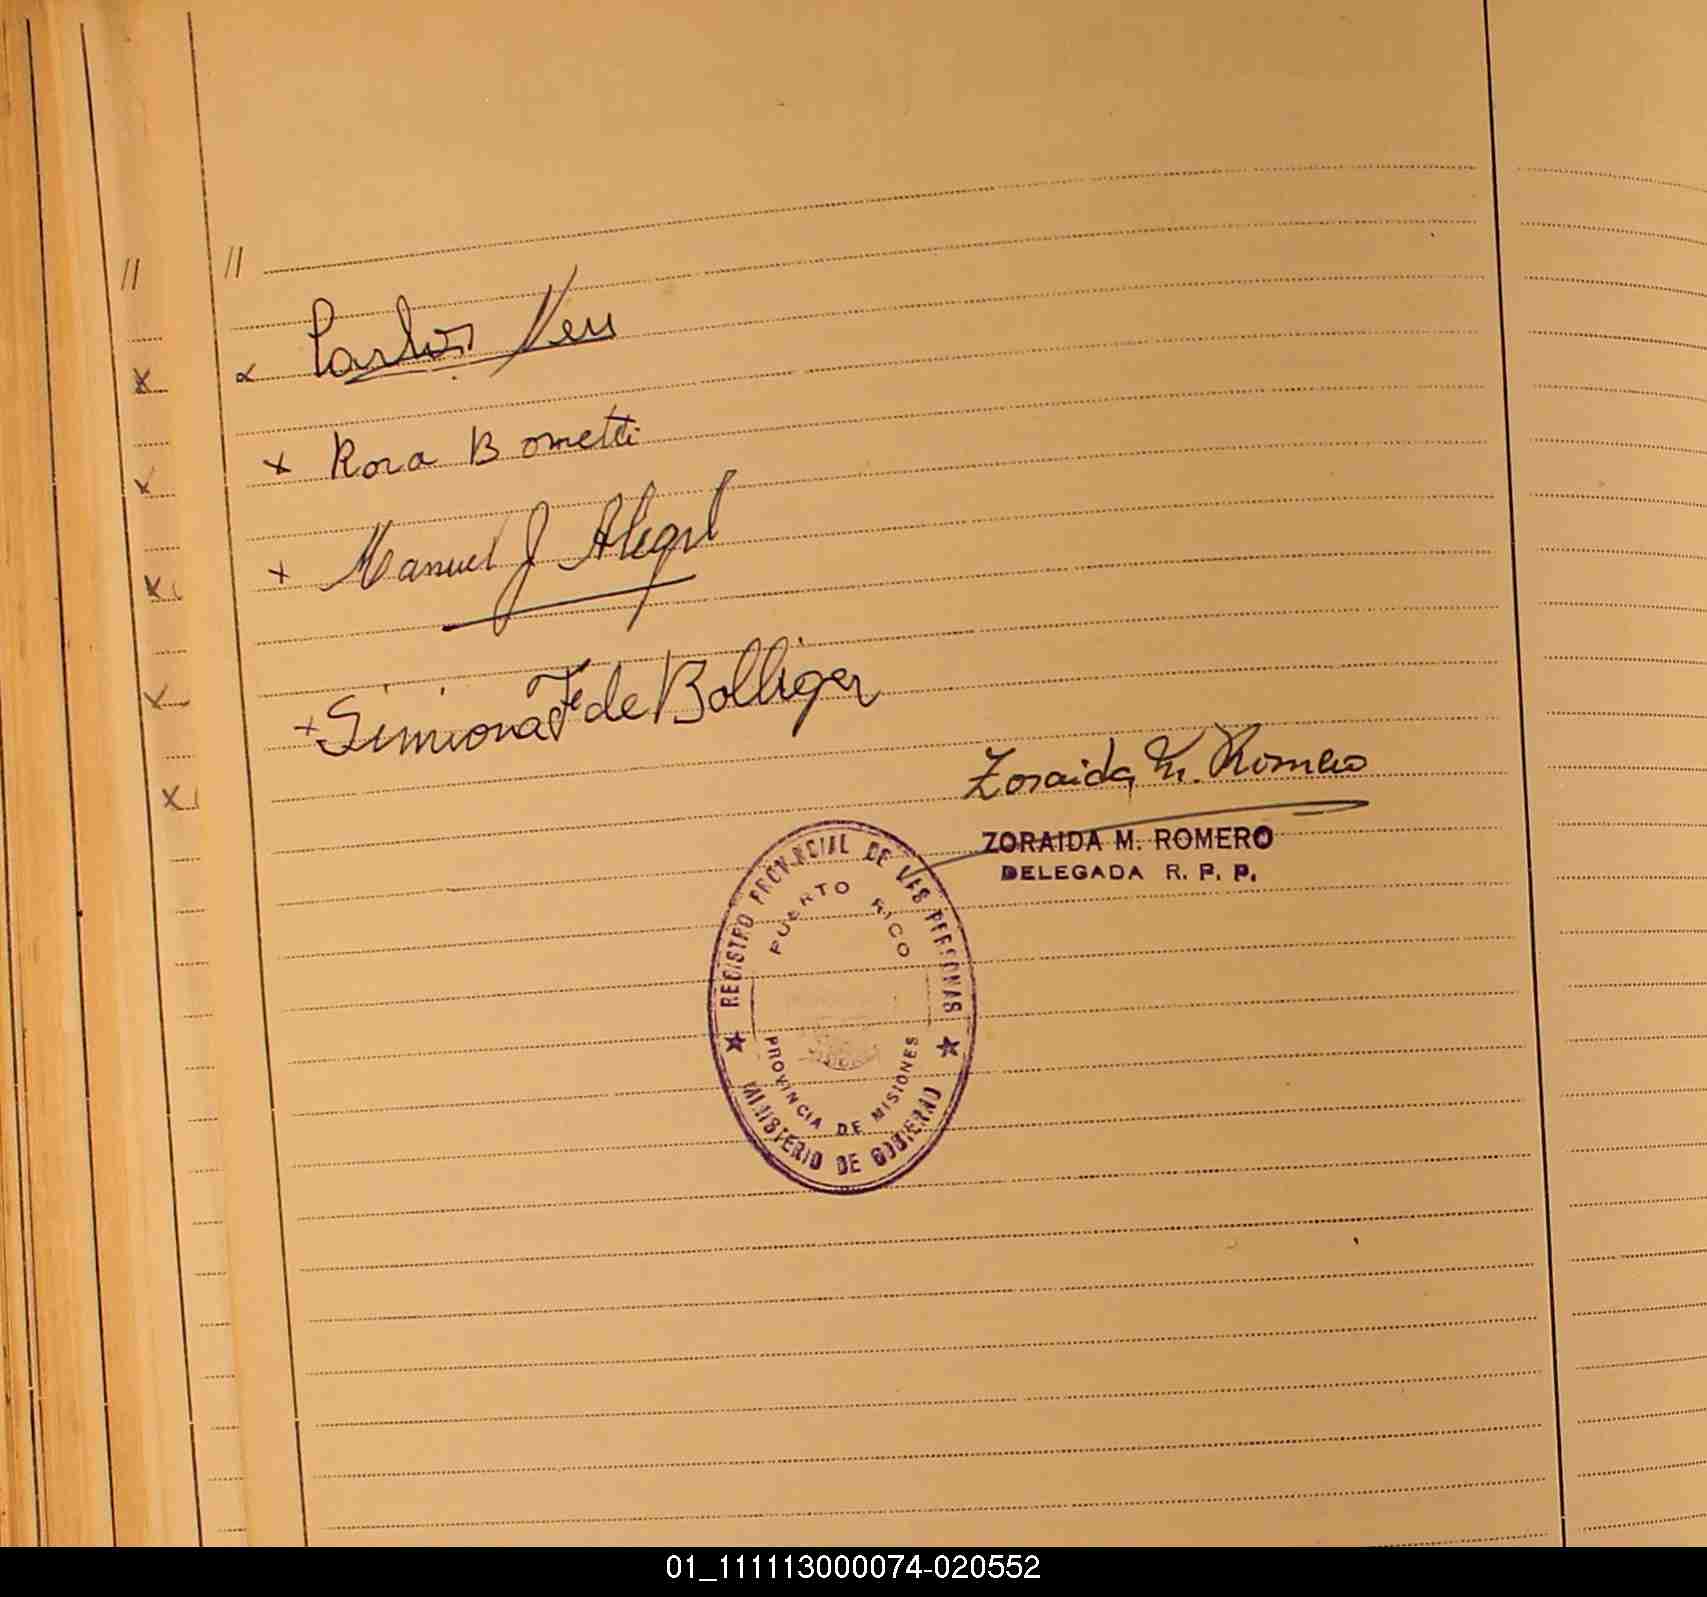 // //
x Carlos Ners
x Rosa Bometti
x Manuel J Alegre
x Simiona F de Bolliger
Zoraida M. Romero
ZORAIDA M. ROMERO
DELEGADA R. P. P.
REGISTRO PROVINCIAL DE LAS PERSONAS
PUERTO RICO
PROVINCIA DE MISIONES
MINISTERIO DE GOBIERNO
01_111113000074-020552